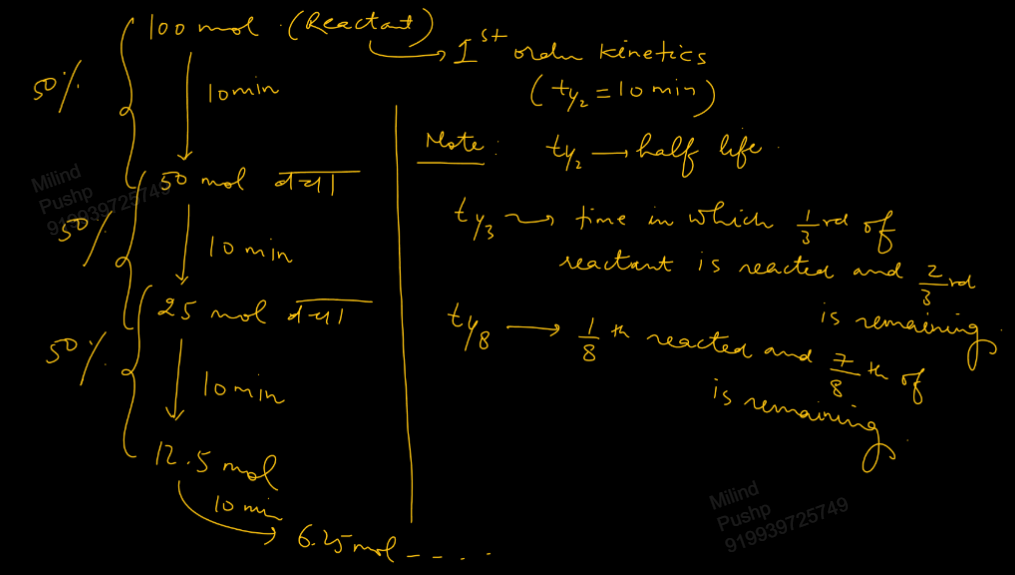 100 mol (Reactant)
1st order kinetics
(t1/2 = 10 min)
50%
10 min
50 mol बचा
50%
10 min
25 mol बचा
50%
10 min
12.5 mol
10 min
6.25 mol - - - -
Note: t1/2 → half life.
t1/3 → time in which 1/3 rd of
reactant is reacted and 2/3 rd
is remaining.
t1/8 → 1/8 th reacted and 7/8 th of
is remaining.
Milind
Pushp
919939725749
Milind
Pushp
919939725749